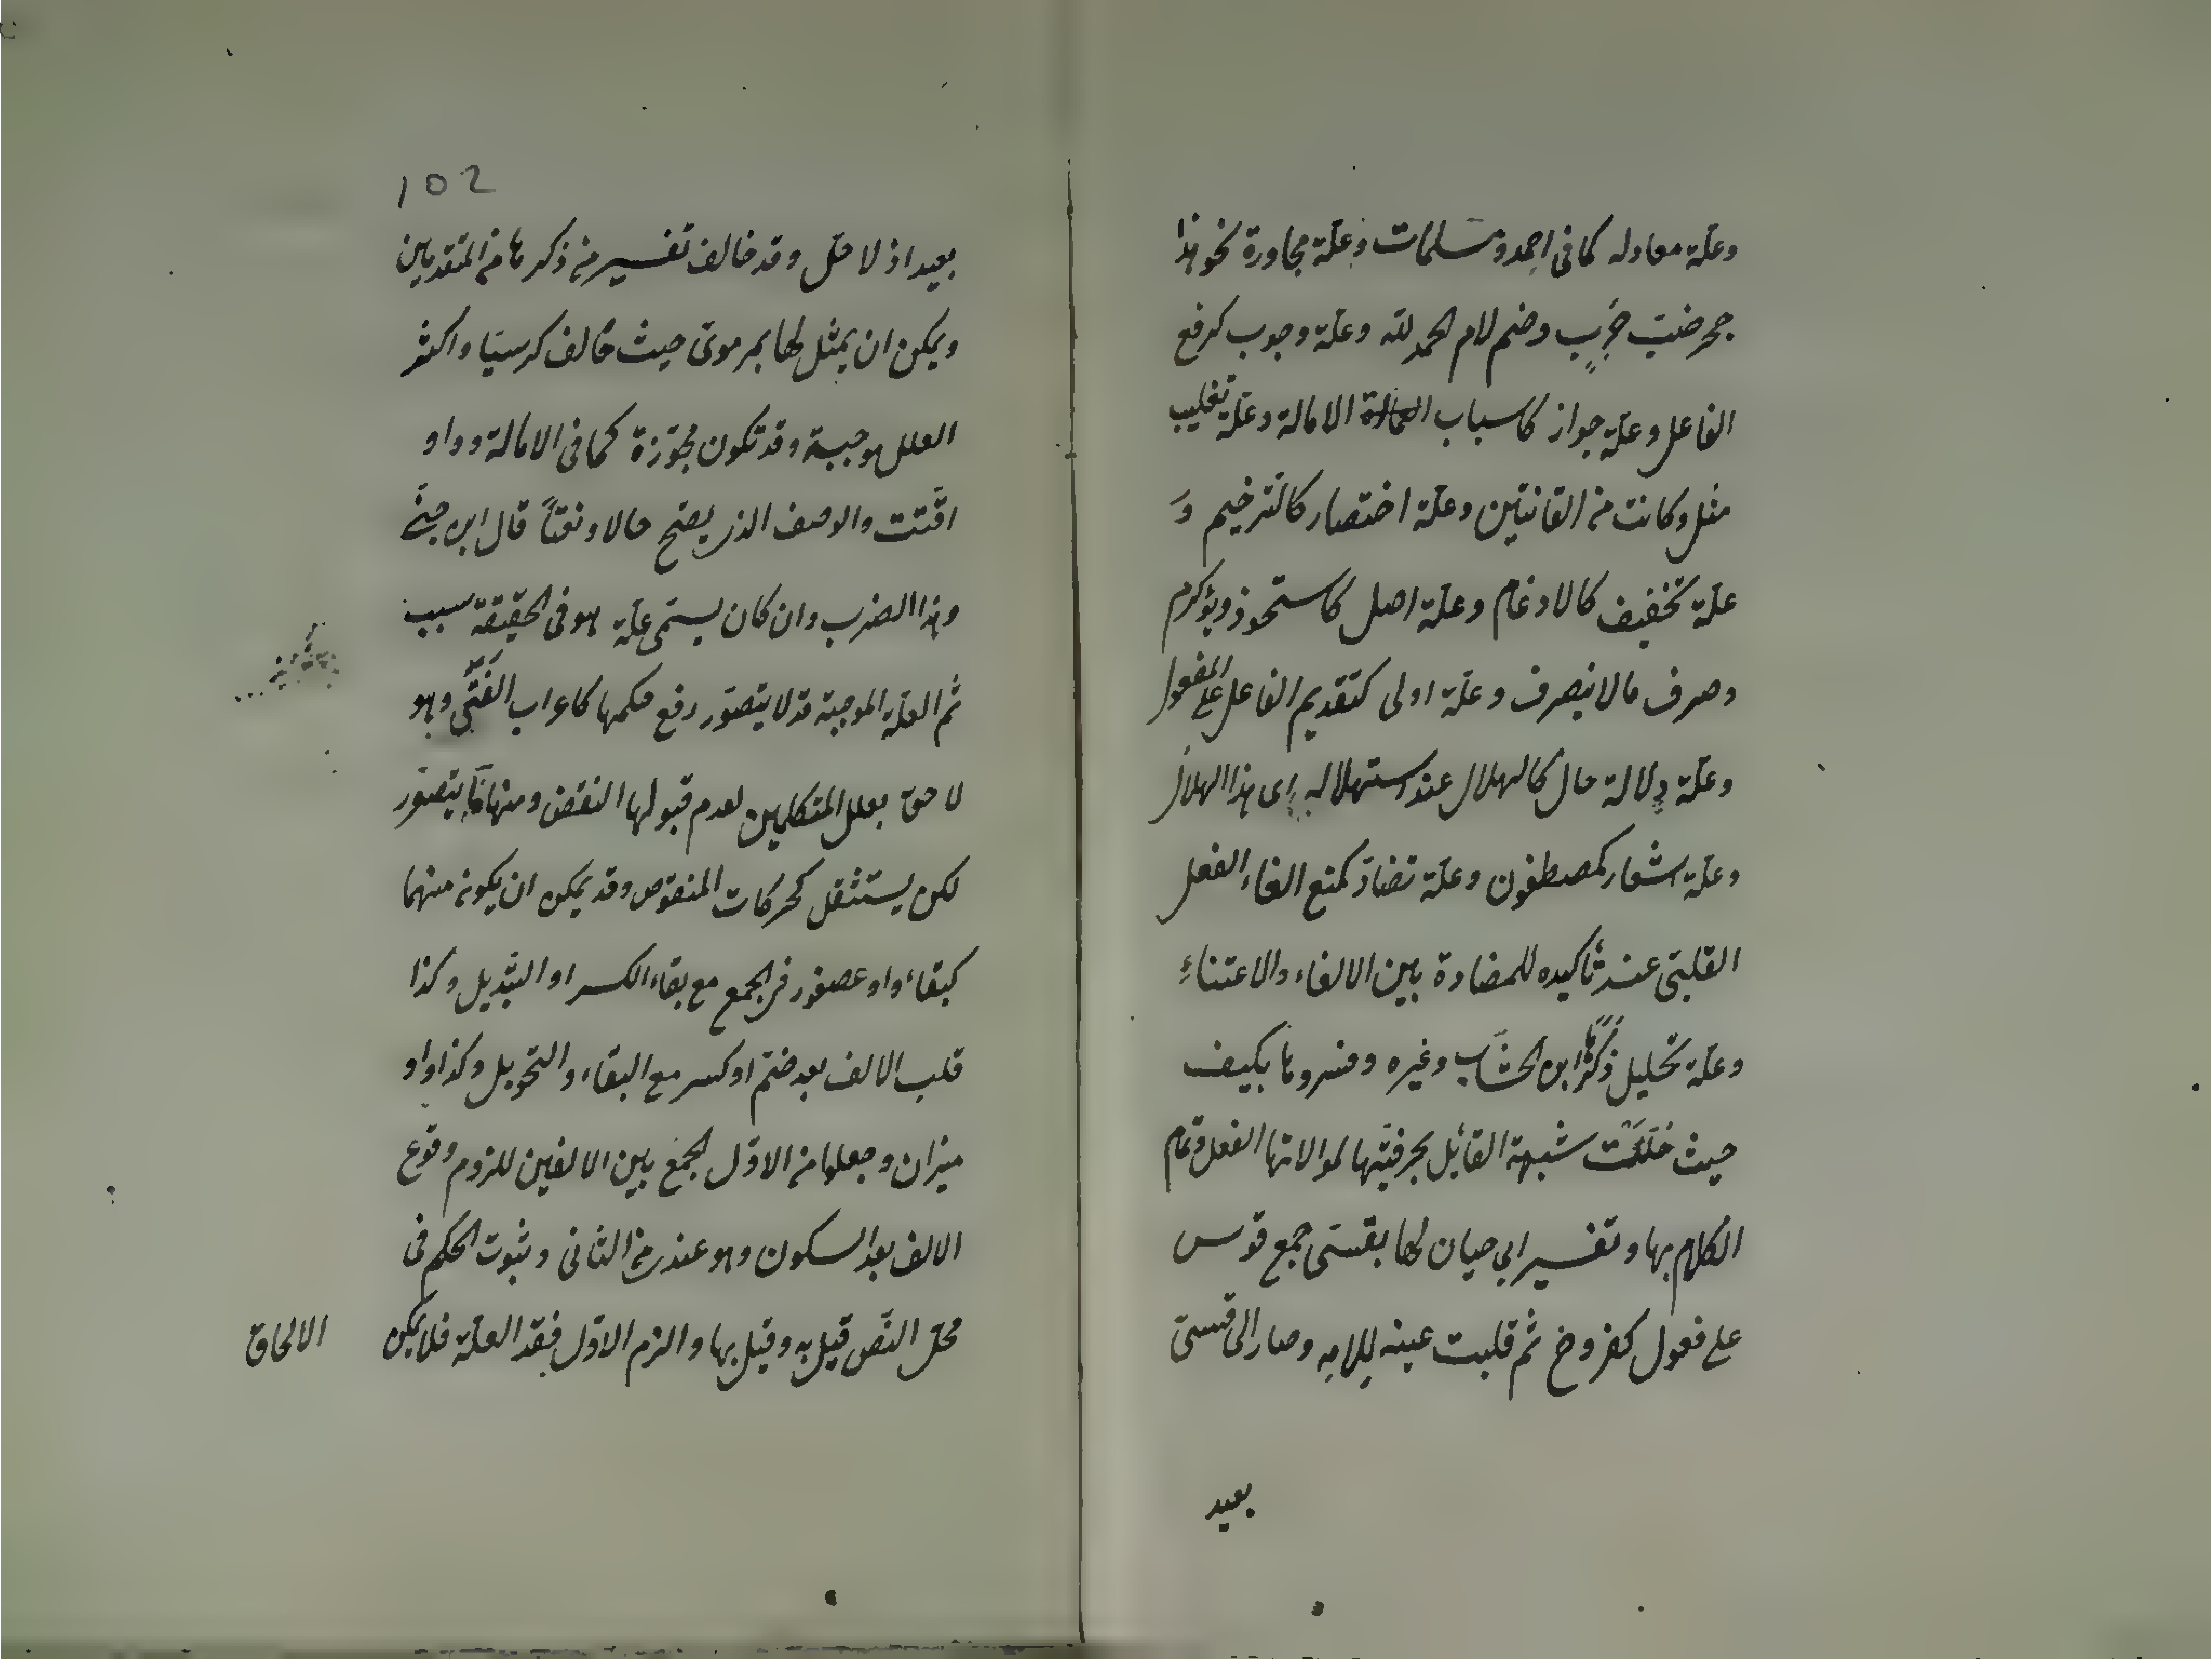 وعلة معادله كما فى احمد ومسلمات وعلة مجاورة نحو هذا
جحر ضب خرب وضم لام الحمد لله وعلة وجوب كرفع
الفاعل وعلة جواز كاسباب الامالة وعلة تغليب
مثل وكانت من القانتين وعلة اختصار كالترخيم و
علة تخفيف كالادغام وعلة اصل كاستحوذ ويؤكرم
وصرف مالا ينصرف وعلة اولى كتقديم الفاعل على المفعول
وعلة دلالة حال كالهلال عند استهلاله اى هذا الهلال
وعلة اشعار كمصطفون وعلة تضاد كمنع الغاء الفعل
القلبى عند تأكيده للمضادة بين الالغاء والاعتناء
وعلة تحليل ذكرها ابن الخشاب وغيره وفسروها بكيف
حيث حللت شبهة القائل بحرفيتها لموالاتها الفعل وتمام
الكلام بها وتفسير ابي حيان لها بقسى جمع قوس
على فعول كفروخ ثم قلبت عينه للامه وصار الى قسى
بعيد
102
بعيد اذ لا حل وقد خالف تفسير من ذكرها من المتقدمين
ويمكن ان يمثل لها بمرموى حيث خالف كرسيا واكثر
العلل موجبة وقد تكون مجوزة كما فى الامالة وواو
اقتت والوصف الذى يصح حالا ونعتا قال ابن جنى
وهذا الضرب وان كان يسمى علة هو فى الحقيقة سبب
ثم العلة الموجبة قد لا يتصور رفع حكمها كاعراب الفتى وهو
لاحق بعلل المتكلمين لعدم قبولها النقض ومنها ما يتصور
لكن يستثقل كحركات المنقوص وقد يمكن ان يكون منهما
كبقاء واو عصفور فى الجمع مع بقاء الكسر او التبديل وكذا
قلب الالف بعد ضم او كسر مع البقاء والتحويل وكذا واو
ميزان وجعلها من الاول لجمع بين الالفين للزوم وقوع
الالف بعد السكون وهو عندى من الثانى وثبوت الحكم فى
محل النص قيل به وقيل بها والزم الاول بفقد العلة فلا يمكن
الالحاق